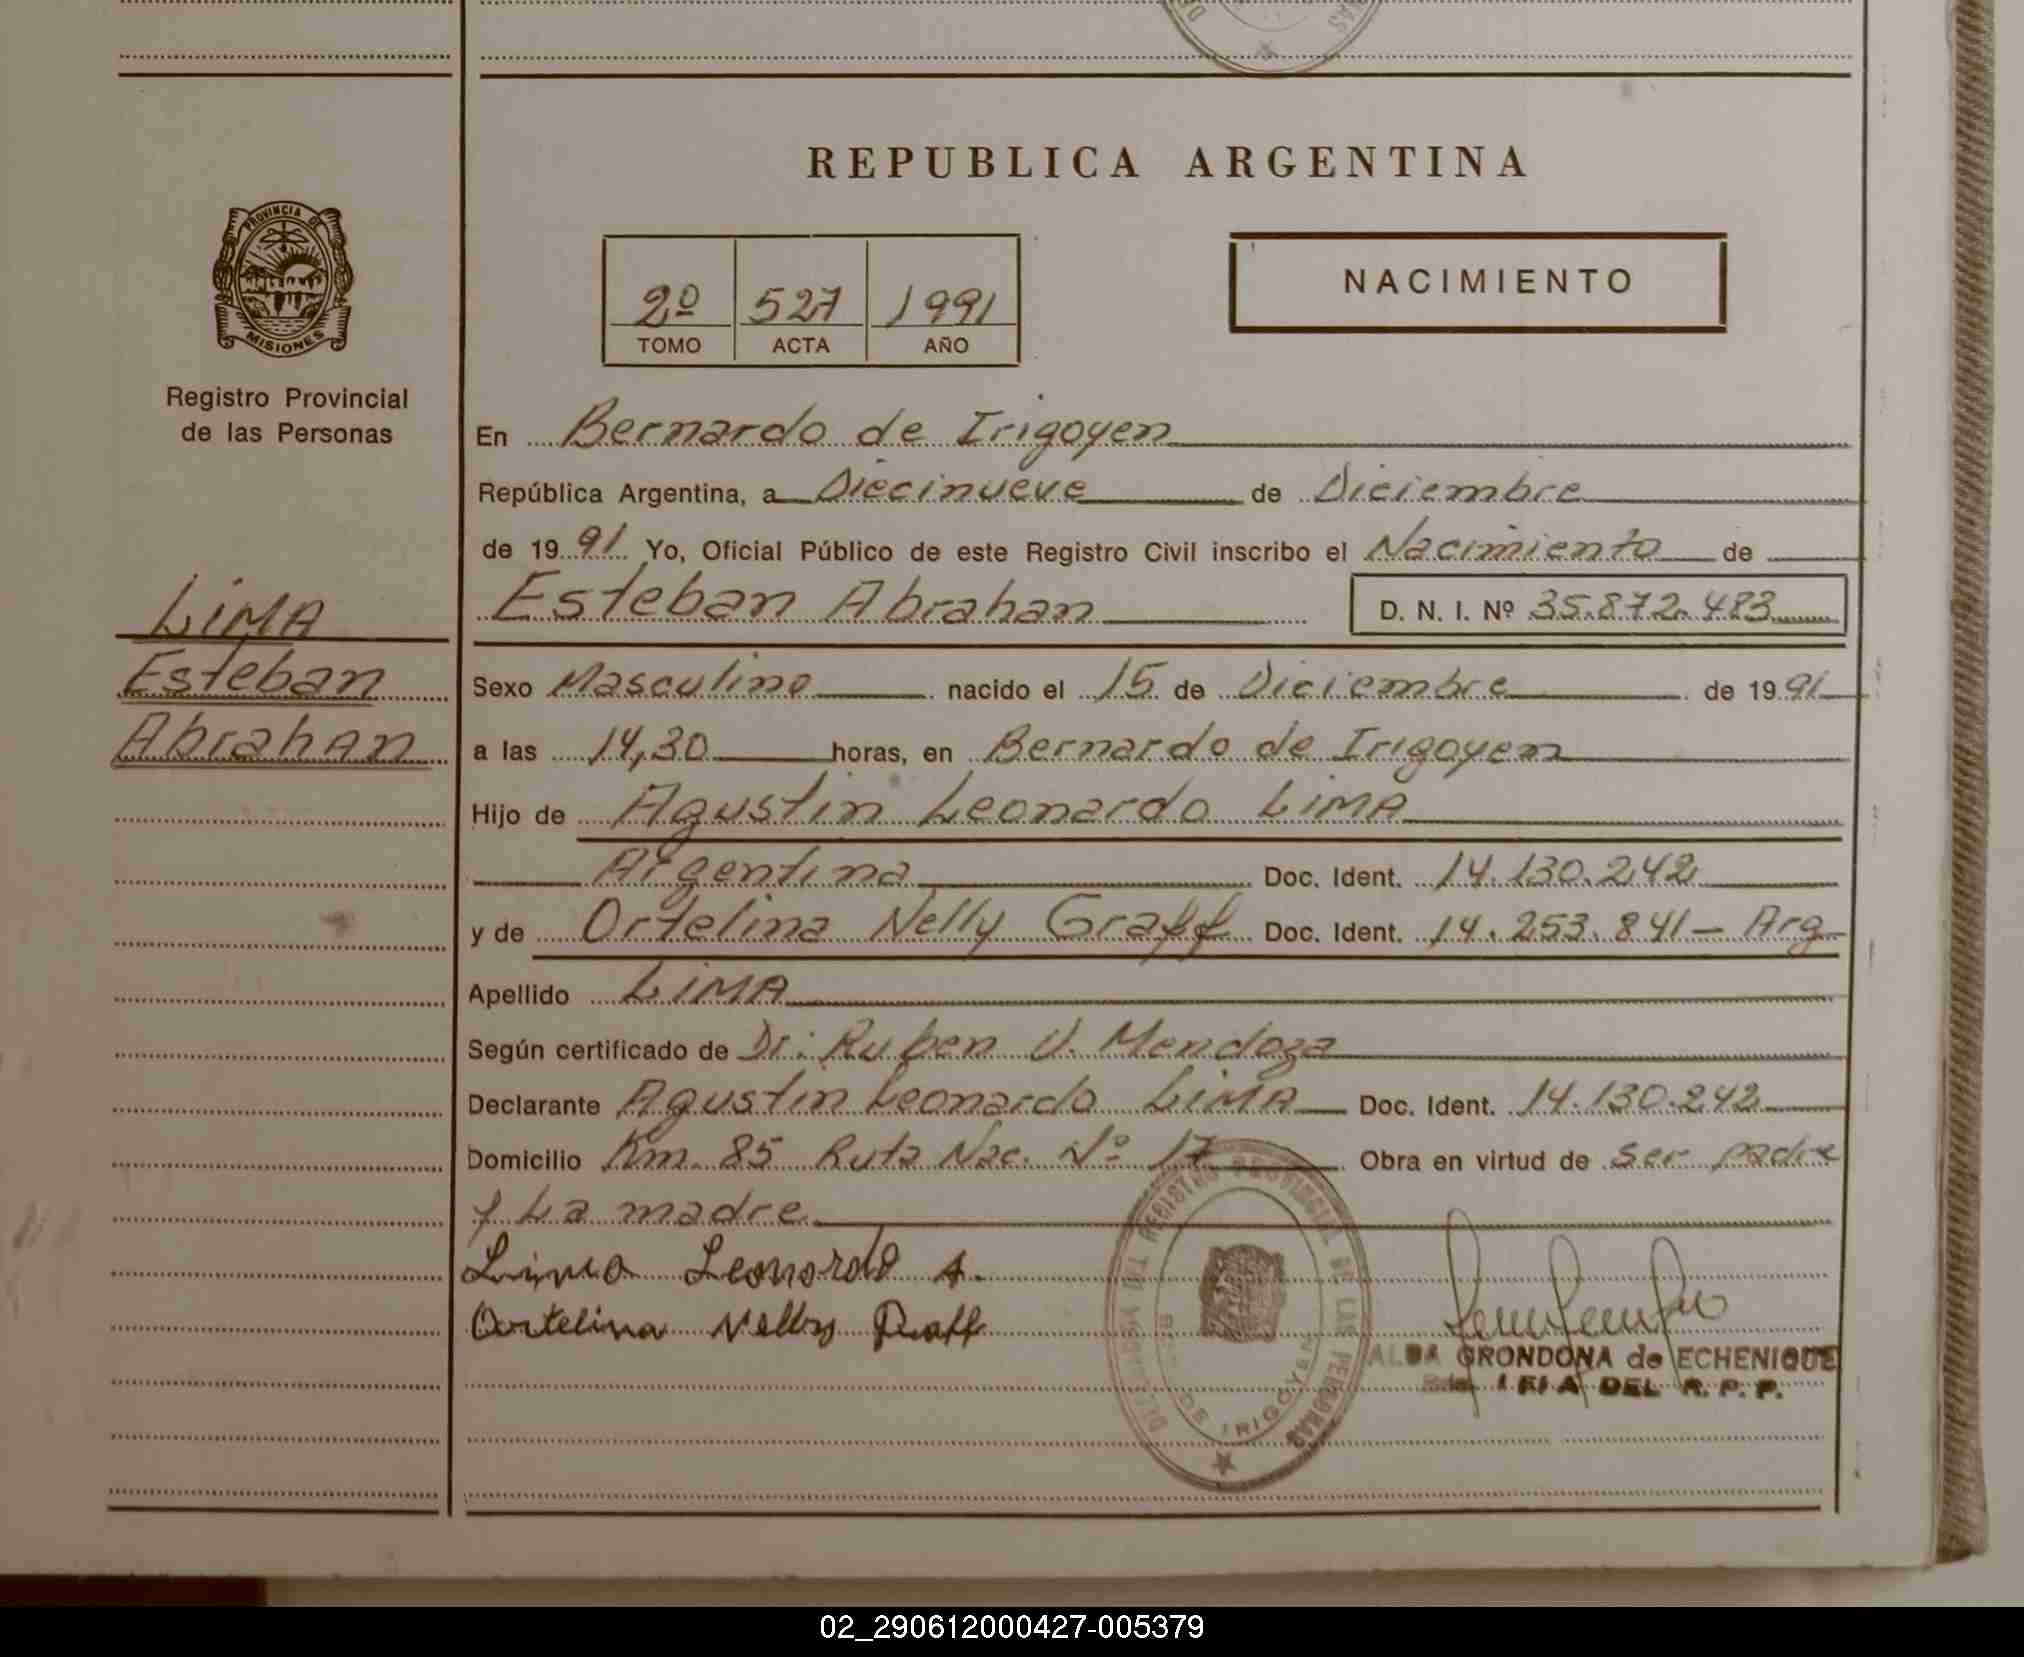 REPUBLICA ARGENTINA
PROVINCIA DE
MISIONES
Registro Provincial
de las Personas
2º 527 1991
TOMO ACTA AÑO
NACIMIENTO
En Bernardo de Irigoyen
República Argentina, a Diecinueve de Diciembre
de 1991 Yo, Oficial Público de este Registro Civil inscribo el Nacimiento de
Esteban Abrahan D. N. I. Nº 35.872.483
LiMA
Esteban
Abrahan
Sexo Masculino nacido el 15 de Diciembre de 1991
a las 14,30 horas, en Bernardo de Irigoyen
Hijo de Agustin Leonardo LiMA
Argentina Doc. Ident. 14.130.242
y de Ortelina Nelly Graff Doc. Ident. 14.253.841 - Arg
Apellido LiMA
Según certificado de Dr: Ruben V. Mendoza
Declarante Agustin Leonardo LiMA Doc. Ident. 14.130.242
Domicilio Km. 85 Ruta Nac. Nº 17 Obra en virtud de ser padre
y La madre
Lima Leonardo A.
Ortelina Nelly Graff
REGISTRO PROVINCIAL DE LAS PERSONAS
DE IRIGOYEN
ALBA GRONDONA de ECHENIQUE
JEFA DEL R. P. P.
02_290612000427-005379